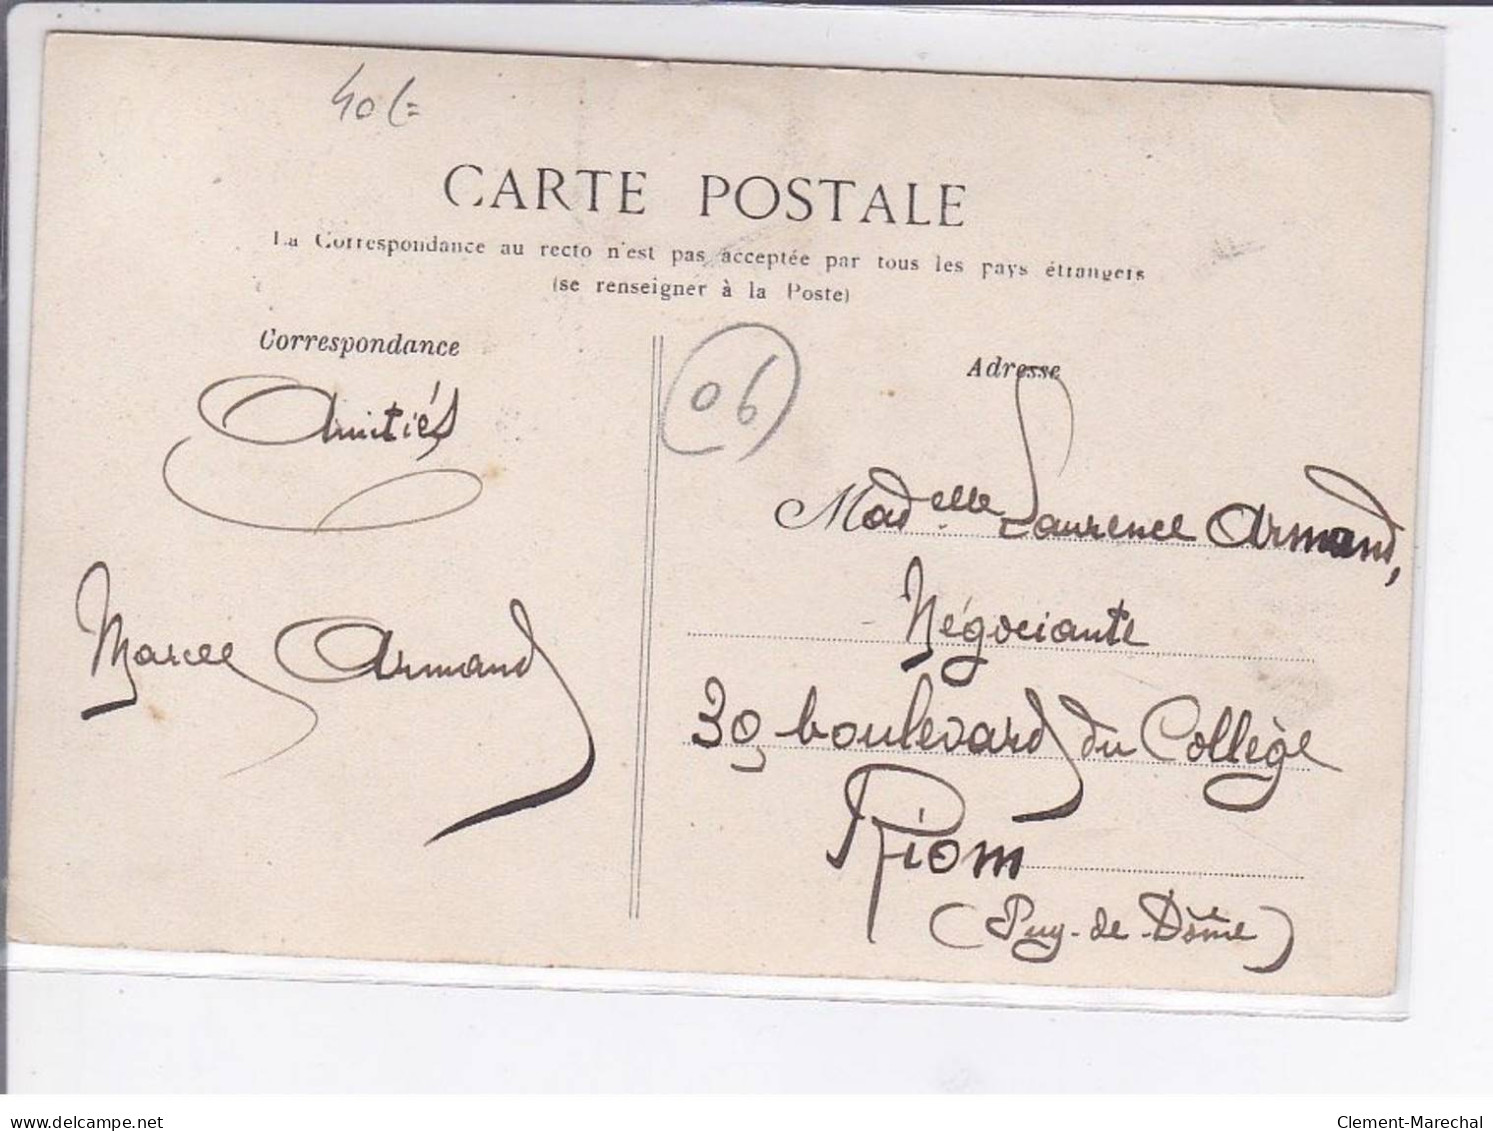 40f=
CARTE POSTALE
La Correspondance au recto n'est pas acceptée par tous les pays étrangers
(se renseigner à la Poste)
Correspondance
Amitiés
Marcel Armand
06
Adresse
Madelle Laurence Armand,
Négociante
39 boulevard du Collège
Riom
(Puy-de-Dôme)
www.delcampe.net
Clement-Marechal